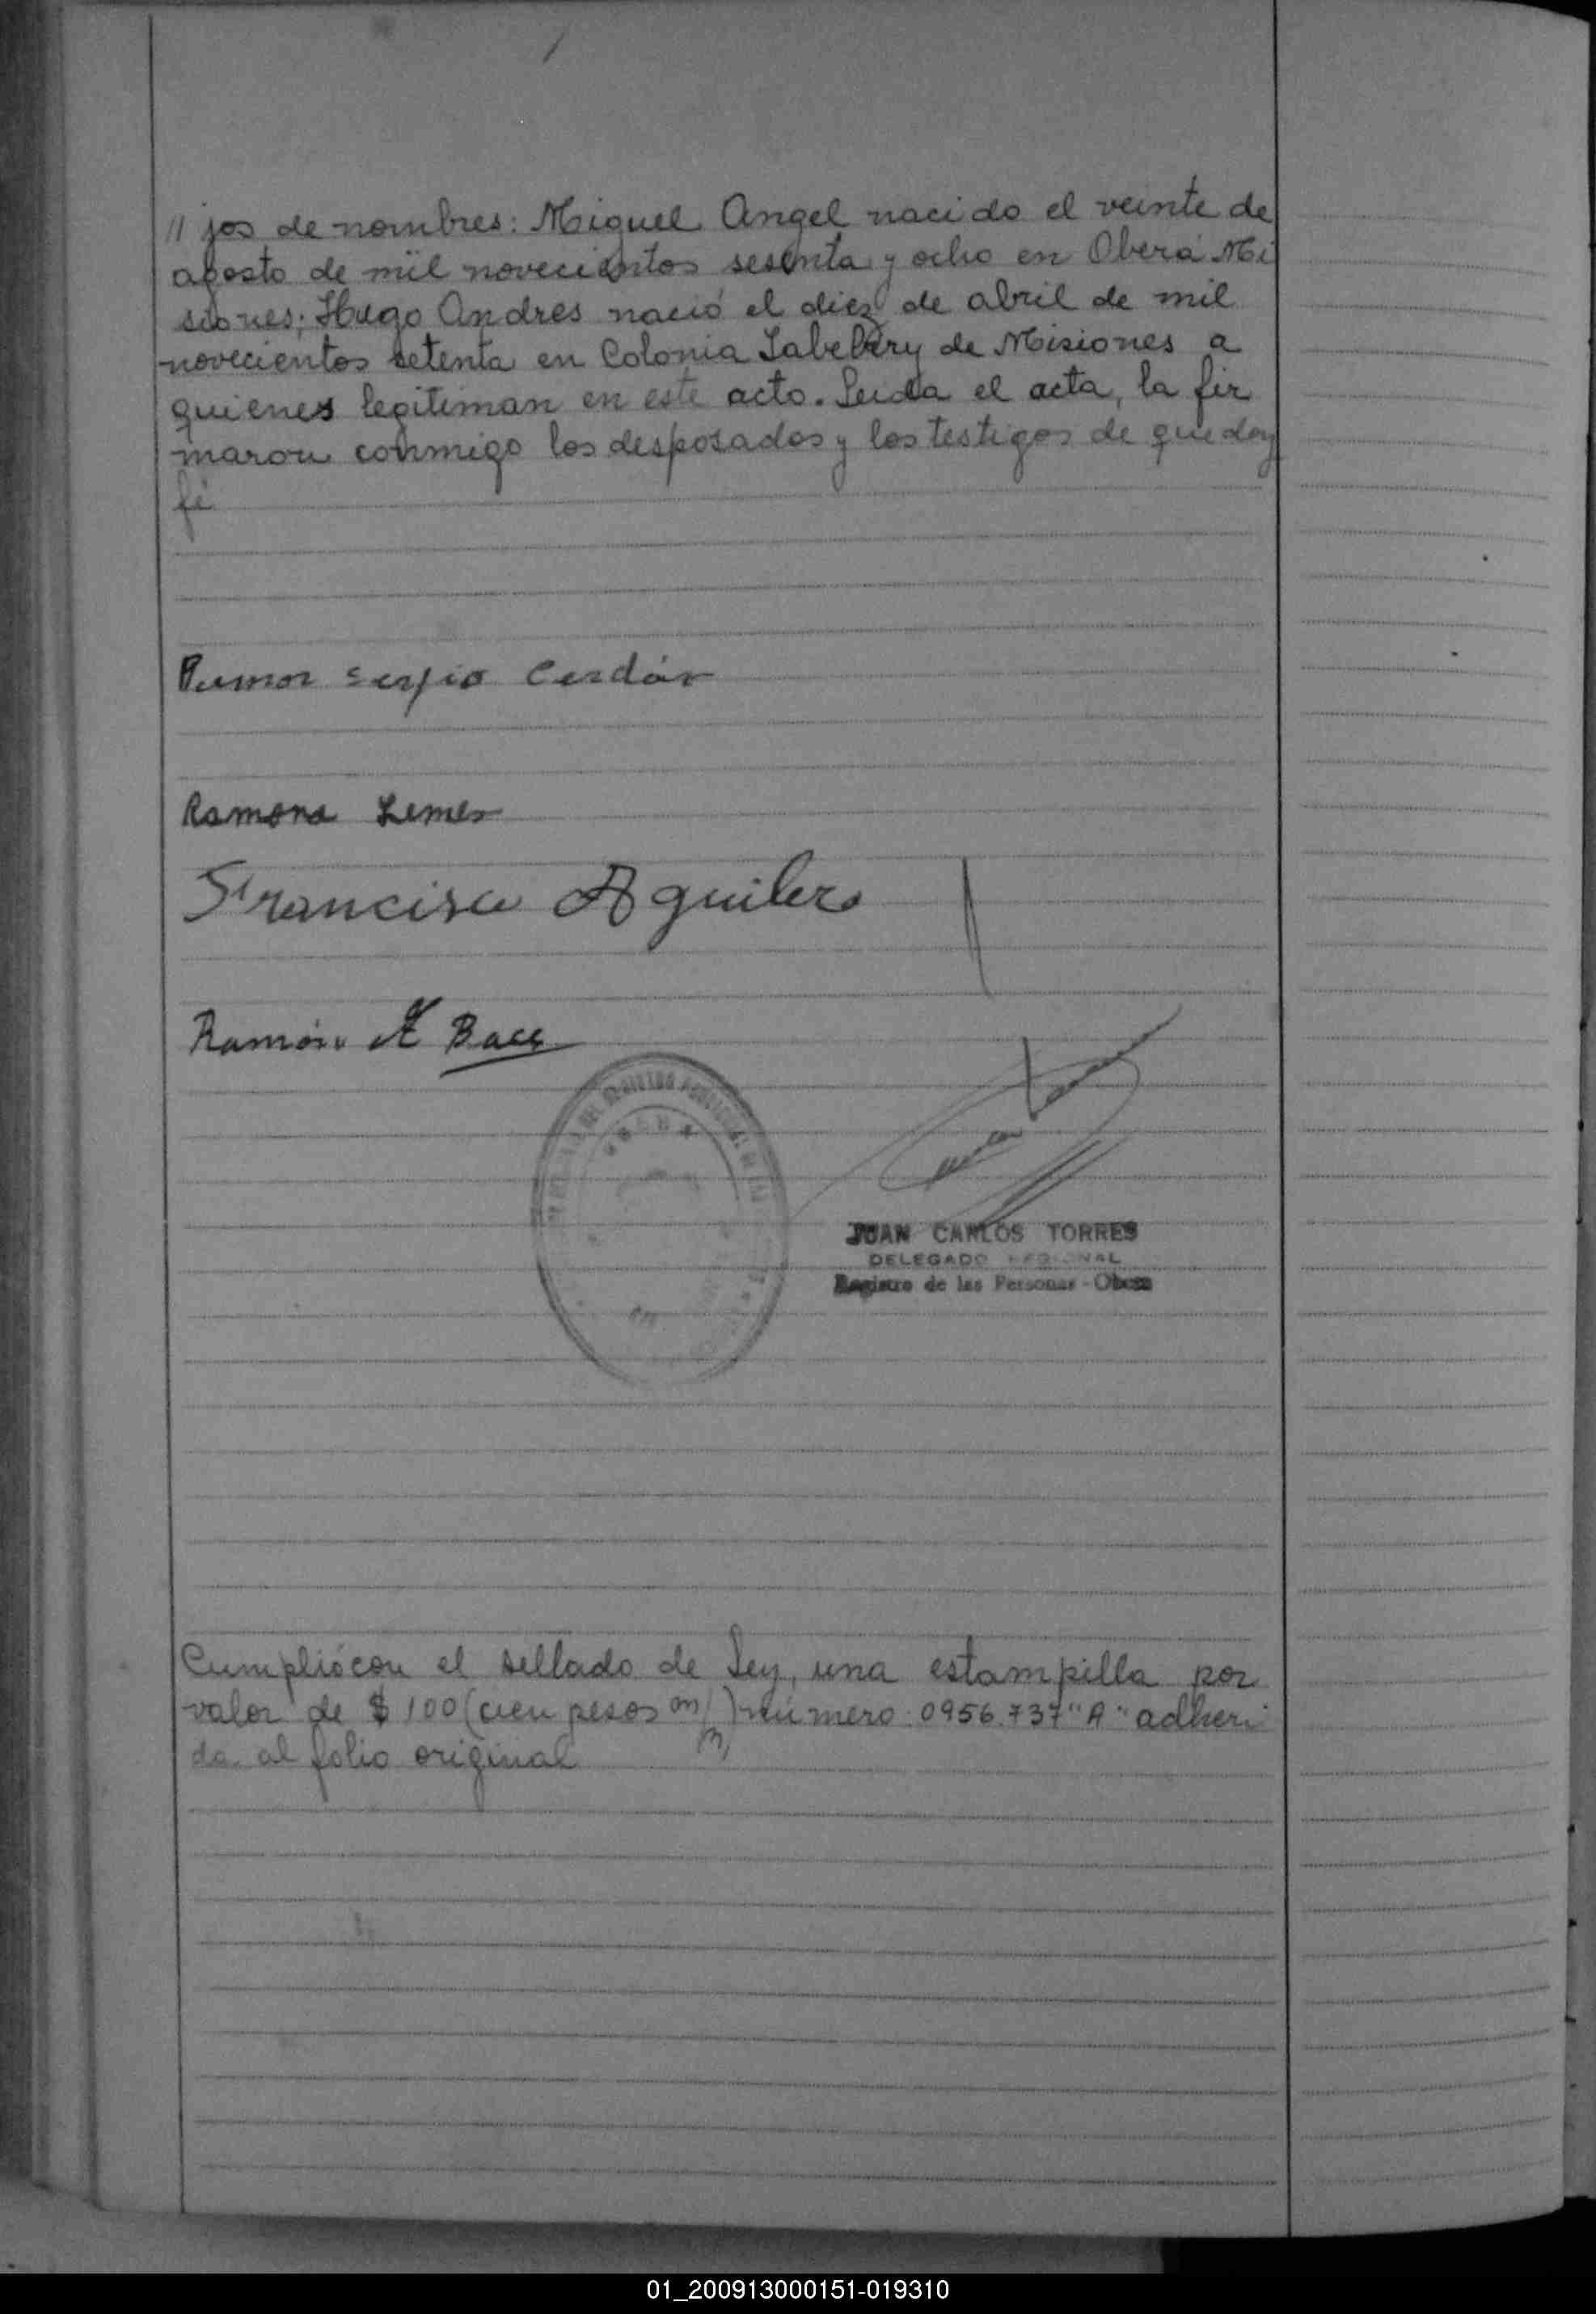 // jos de nombres: Miguel Angel nacido el veinte de
agosto de mil novecientos sesenta y ocho en Oberá Mi
siones; Hugo Andres nació el diez de abril de mil
novecientos setenta en Colonia Yabebiry de Misiones a
quienes legitiman en este acto. Leida el acta, la fir
maron conmigo los desposados y los testigos de que doy
fé
Sergio Cerdán
Ramona Lemes
Francisco Aguilera
Ramón
JUAN CARLOS TORRES
DELEGADO REGIONAL
Registro de las Personas - Obera
Cumplió con el sellado de Ley, una estampilla por
valor de $ 100 (cien pesos m/n) número 0956.737 "A" adheri
da al folio original
01_200913000151-019310